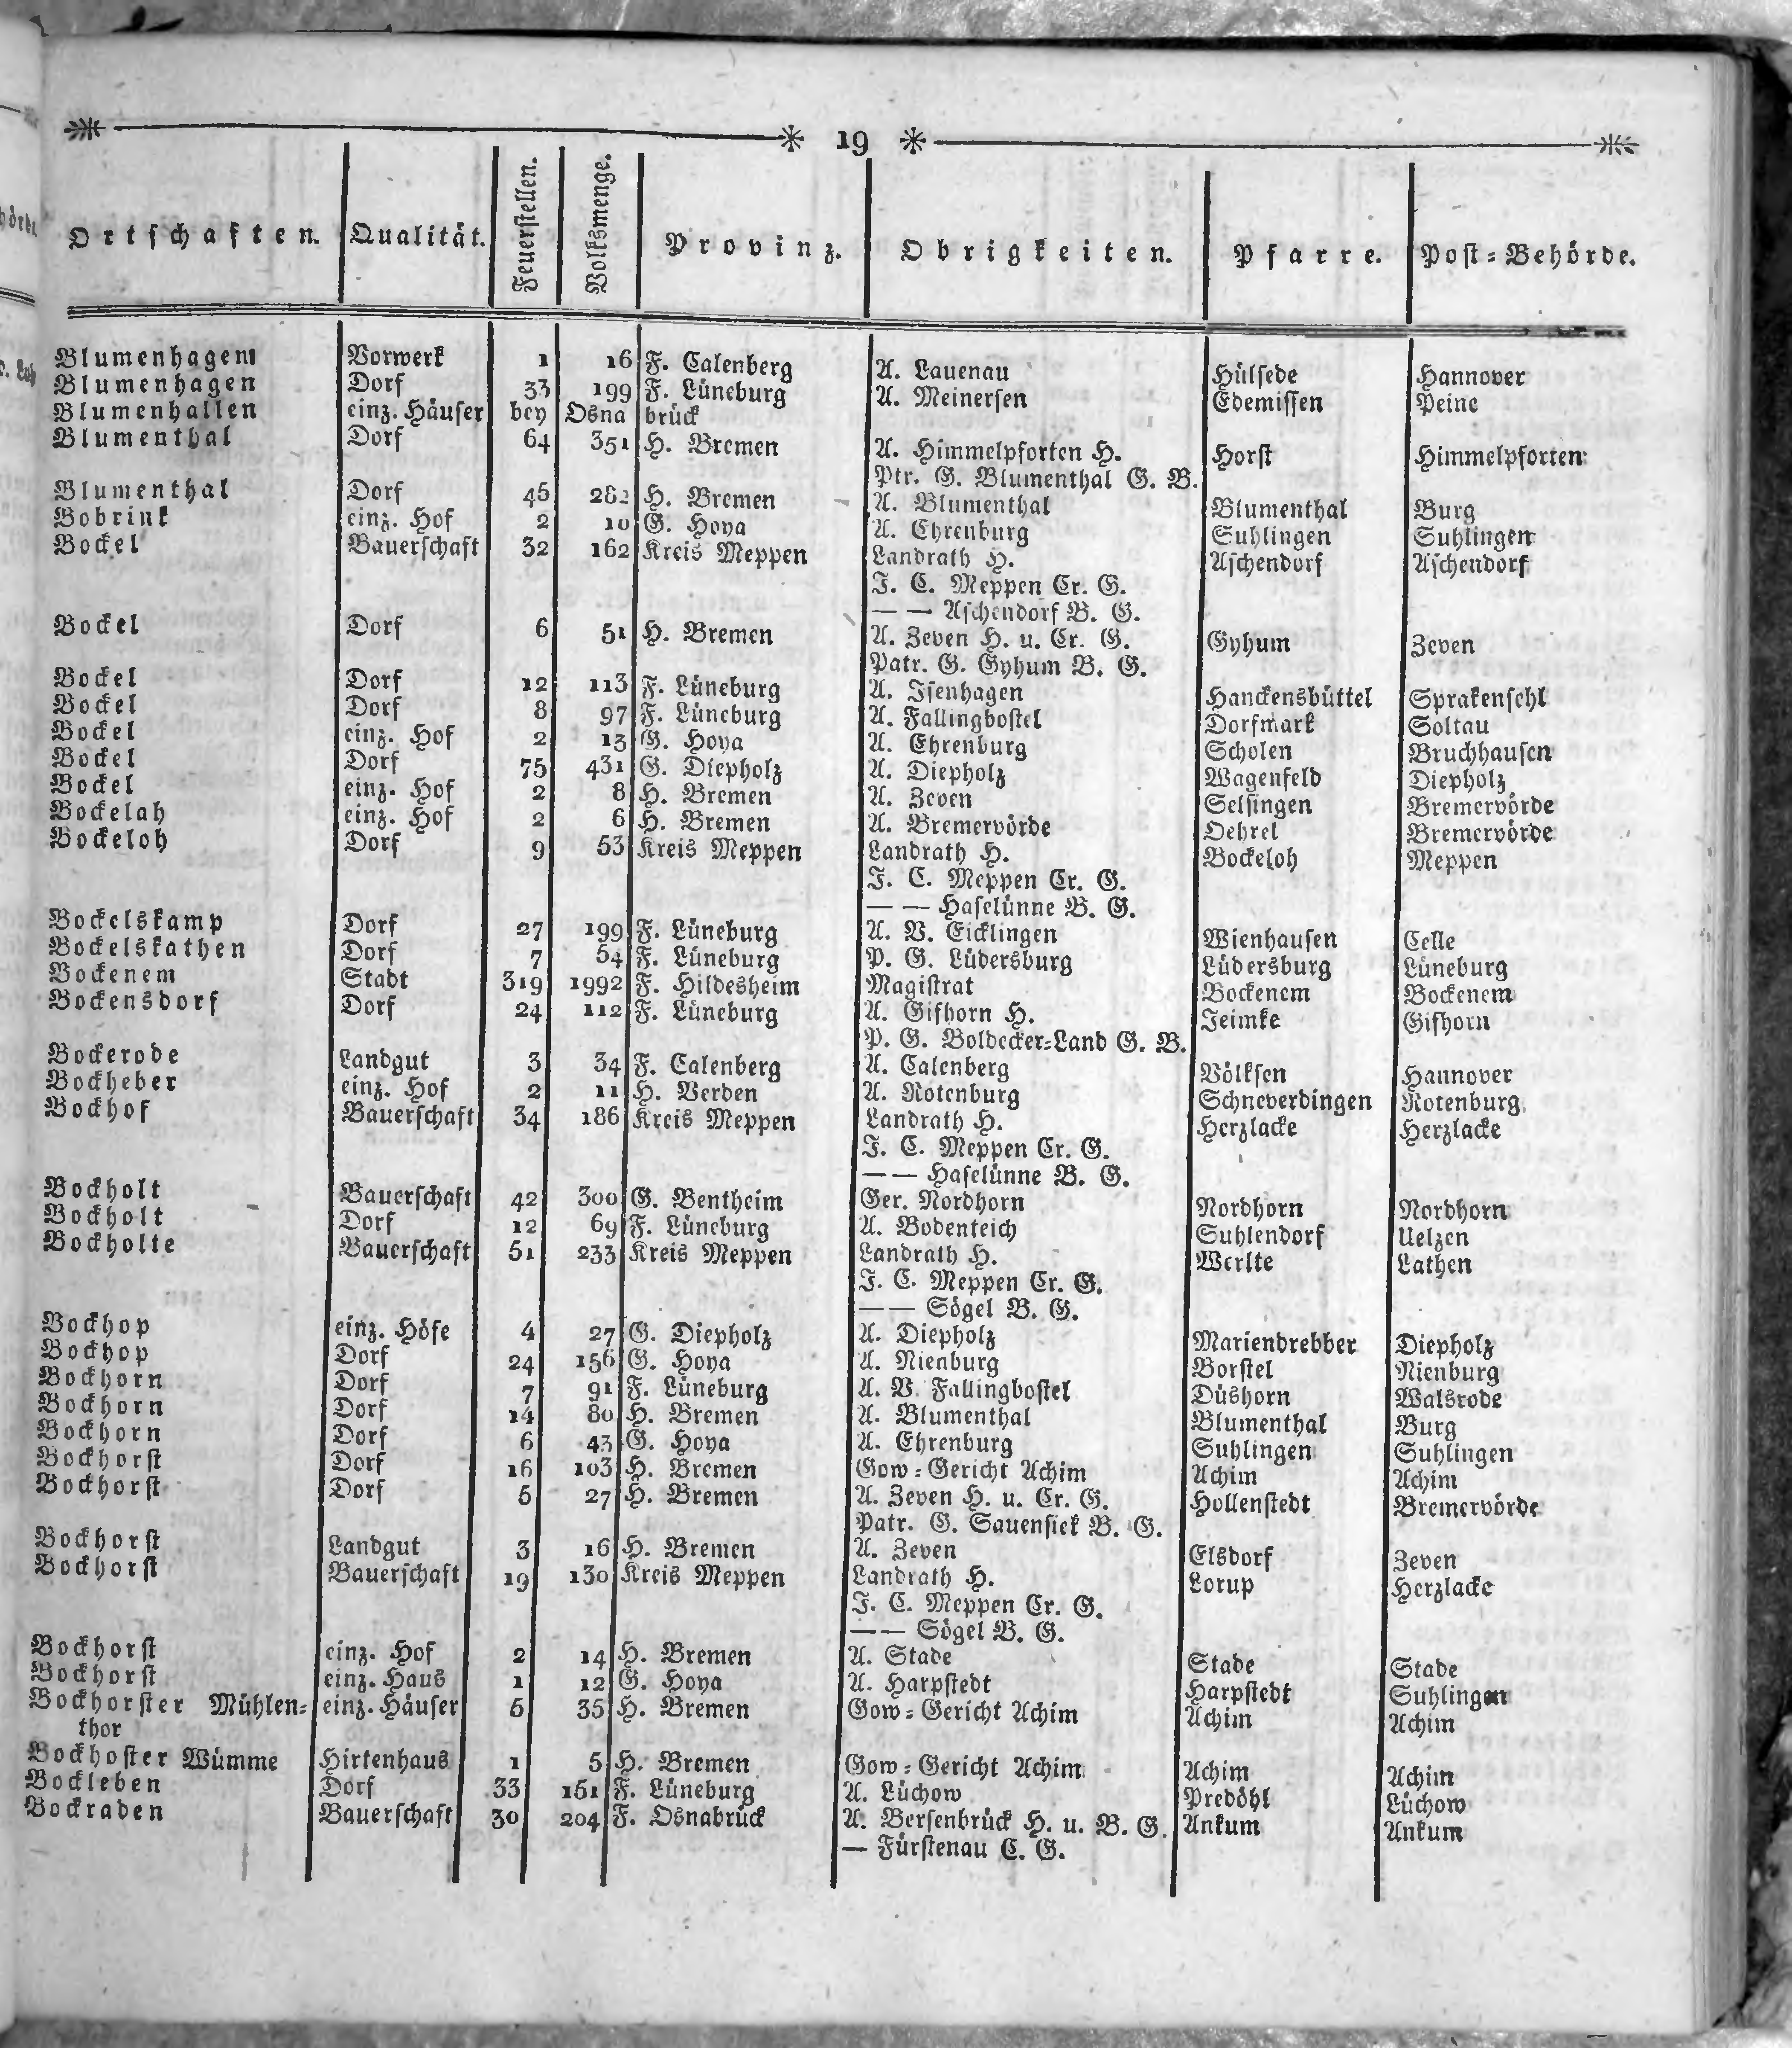 19
Ortschaften. Qualität. Feuerstellen. Volksmenge. Provinz. Obrigkeiten. Pfarre. Post-Behörde.
Blumenhagen Vorwerk 1 16 F. Calenberg A. Lauenau Hülsede Hannover
Blumenhagen Dorf 33 199 F. Lüneburg A. Meinersen Edemissen Peine
Blumenhallen einz. Häuser bey Osnabrück
Blumenthal Dorf 64 351 H. Bremen A. Himmelpforten H. Horst Himmelpforten
Ptr. G. Blumenthal G. B.
Blumenthal Dorf 45 282 H. Bremen A. Blumenthal Blumenthal Burg
Bobrink einz. Hof 2 10 G. Hoya A. Ehrenburg Suhlingen Suhlingen
Bockel Bauerschaft 32 162 Kreis Meppen Landrath H. Aschendorf Aschendorf
J. C. Meppen Cr. G.
— — Aschendorf B. G.
Bockel Dorf 6 51 H. Bremen A. Zeven H. u. Cr. G. Gyhum Zeven
Patr. G. Gyhum B. G.
Bockel Dorf 12 113 F. Lüneburg A. Isenhagen Hanckensbüttel Sprakensehl
Bockel Dorf 8 97 F. Lüneburg A. Fallingbostel Dorfmark Soltau
Bockel einz. Hof 2 13 G. Hoya A. Ehrenburg Scholen Bruchhausen
Bockel Dorf 75 431 G. Diepholz A. Diepholz Wagenfeld Diepholz
Bockel einz. Hof 2 8 H. Bremen A. Zeven Selsingen Bremervörde
Bockelah einz. Hof 2 6 H. Bremen A. Bremervörde Oehrel Bremervörde
Bockeloh Dorf 9 53 Kreis Meppen Landrath H. Bockeloh Meppen
J. C. Meppen Cr. G.
— — Haselünne B. G.
Bockelskamp Dorf 27 199 F. Lüneburg A. V. Eicklingen Wienhausen Celle
Bockelskathen Dorf 7 54 F. Lüneburg P. G. Lüdersburg Lüdersburg Lüneburg
Bockenem Stadt 319 1992 F. Hildesheim Magistrat Bockenem Bockenem
Bockensdorf Dorf 24 112 F. Lüneburg A. Gifhorn H. Jeimke Gifhorn
P. G. Boldecker-Land G. B.
Bockerode Landgut 3 34 F. Calenberg A. Calenberg Völksen Hannover
Bockheber einz. Hof 2 11 H. Verden A. Rotenburg Schneverdingen Rotenburg
Bockhof Bauerschaft 34 186 Kreis Meppen Landrath H. Herzlacke Herzlacke
J. C. Meppen Cr. G.
— — Haselünne B. G.
Bockholt Bauerschaft 42 300 G. Bentheim Ger. Nordhorn Nordhorn Nordhorn
Bockholt Dorf 12 69 F. Lüneburg A. Bodenteich Suhlendorf Uelzen
Bockholte Bauerschaft 51 233 Kreis Meppen Landrath H. Werlte Lathen
J. C. Meppen Cr. G.
— — Sögel B. G.
Bockhop einz. Höfe 4 27 G. Diepholz A. Diepholz Mariendrebber Diepholz
Bockhop Dorf 24 156 G. Hoya A. Nienburg Borstel Nienburg
Bockhorn Dorf 7 91 F. Lüneburg A. V. Fallingbostel Düshorn Walsrode
Bockhorn Dorf 14 80 H. Bremen A. Blumenthal Blumenthal Burg
Bockhorn Dorf 6 43 G. Hoya A. Ehrenburg Suhlingen Suhlingen
Bockhorst Dorf 16 103 H. Bremen Gow-Gericht Achim Achim Achim
Bockhorst Dorf 5 27 H. Bremen A. Zeven H. u. Cr. G. Hollenstedt Bremervörde
Patr. G. Sauensiek B. G.
Bockhorst Landgut 3 16 H. Bremen A. Zeven Elsdorf Zeven
Bockhorst Bauerschaft 19 130 Kreis Meppen Landrath H. Lorup Herzlacke
J. C. Meppen Cr. G.
— — Sögel B. G.
Bockhorst einz. Hof 2 14 H. Bremen A. Stade Stade Stade
Bockhorst einz. Haus 1 12 G. Hoya A. Harpstedt Harpstedt Suhlingen
Bockhorster Mühlen- einz. Häuser 5 35 H. Bremen Gow-Gericht Achim Achim Achim
thor
Bockhoster Wümme Hirtenhaus 1 5 H. Bremen Gow-Gericht Achim Achim Achim
Bockleben Dorf 33 161 F. Lüneburg A. Lüchow Predöhl Lüchow
Bockraden Bauerschaft 30 204 F. Osnabrück A. Bersenbrück H. u. B. G. Ankum Ankum
— Fürstenau C. G.